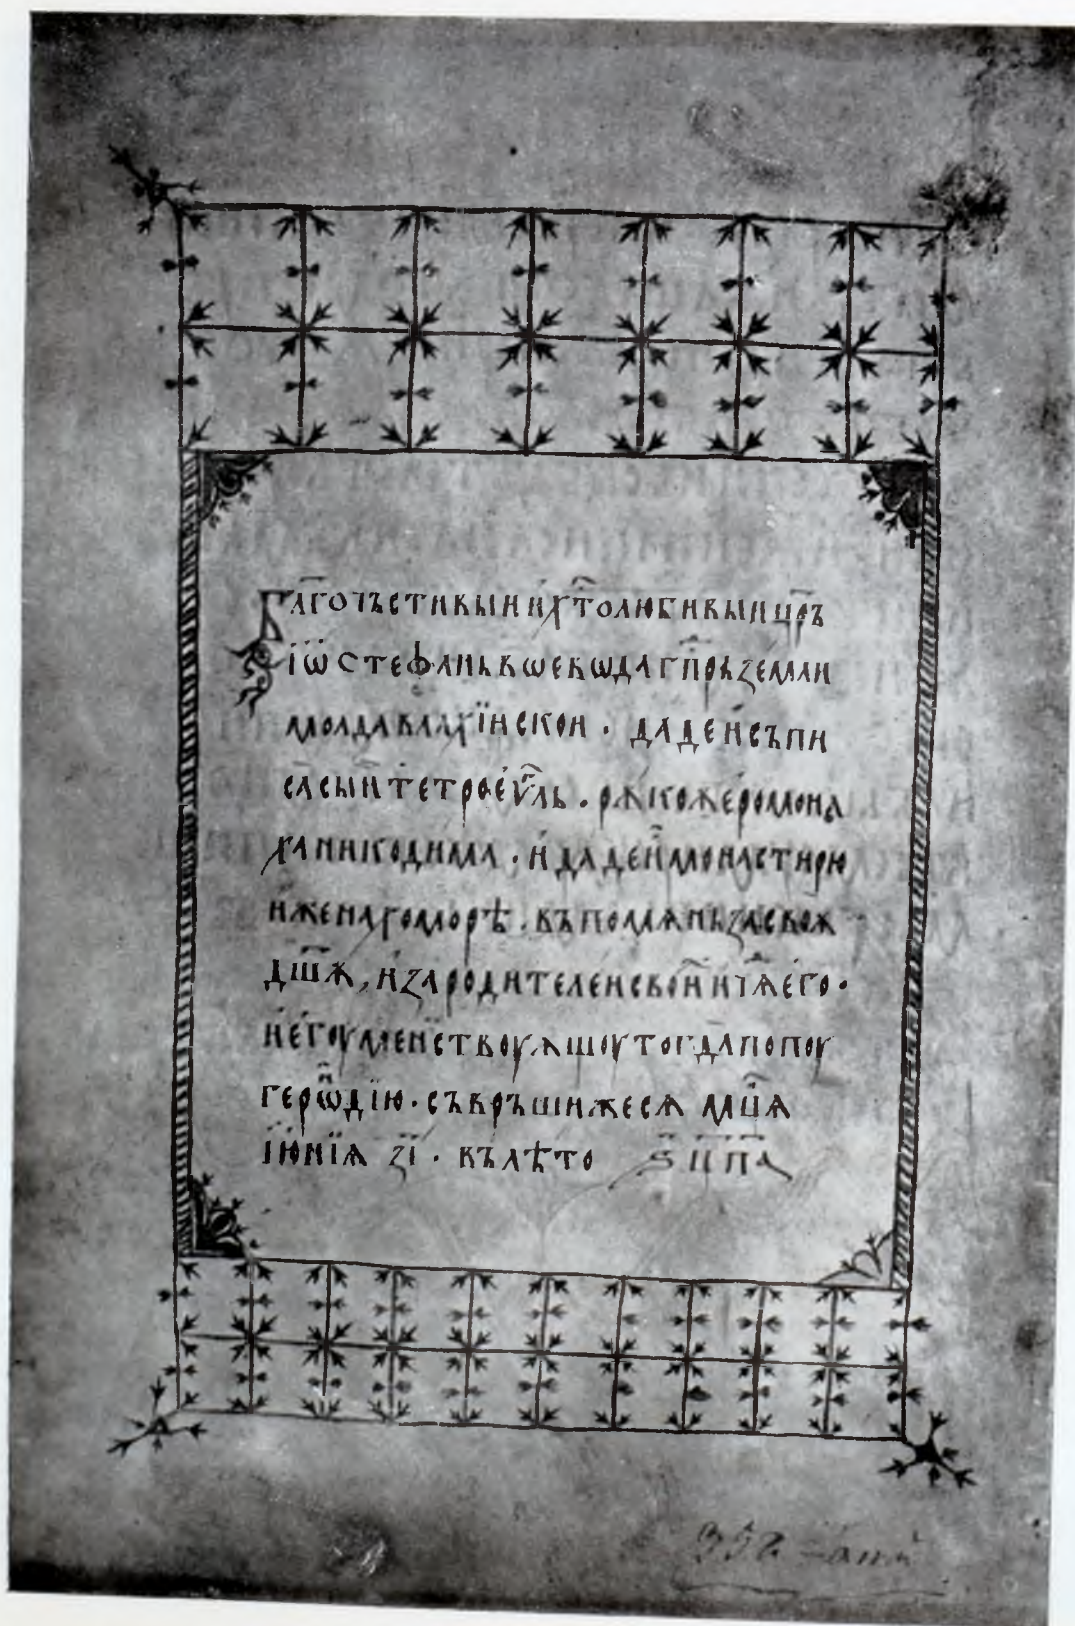 Бл҃гочьстивыи и҆ хт҃олюбивыи цр҃ъ
і҆ѡ̈ стефань вѡевѡда гп҃рь ꙁемли
молдавлахїискои · даде и҆съпи
са сы́и тетрое҆ѵ҃ль · рѫкож е҆ромона
ха никодима · и҆ даде и҆ монастирю
и҆же на гоморѣ · въ помѧнь ꙁа своѫ
дш҃ѫ, и҆ ꙁа родителеи свои҆ и
и҆ е҆гоуменьствоуѫщоу тогда попоу
герѡ҆дїю · съвръшижесѧ мц҃ѧ
і҆ю҆нїа ꙁ҃і · въ лѣто ҂ѕ҃ ц҃ п҃а
352 –